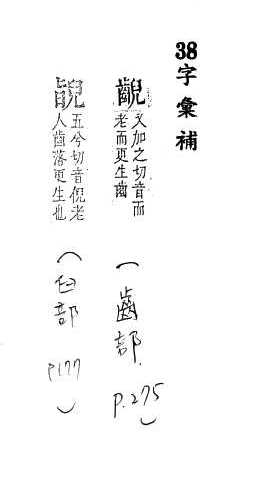 38字彙補
又如之切音而
老而更生齒
(齒部. P.275)
五兮切音倪老
人齒落更生也
(臼部 P177)